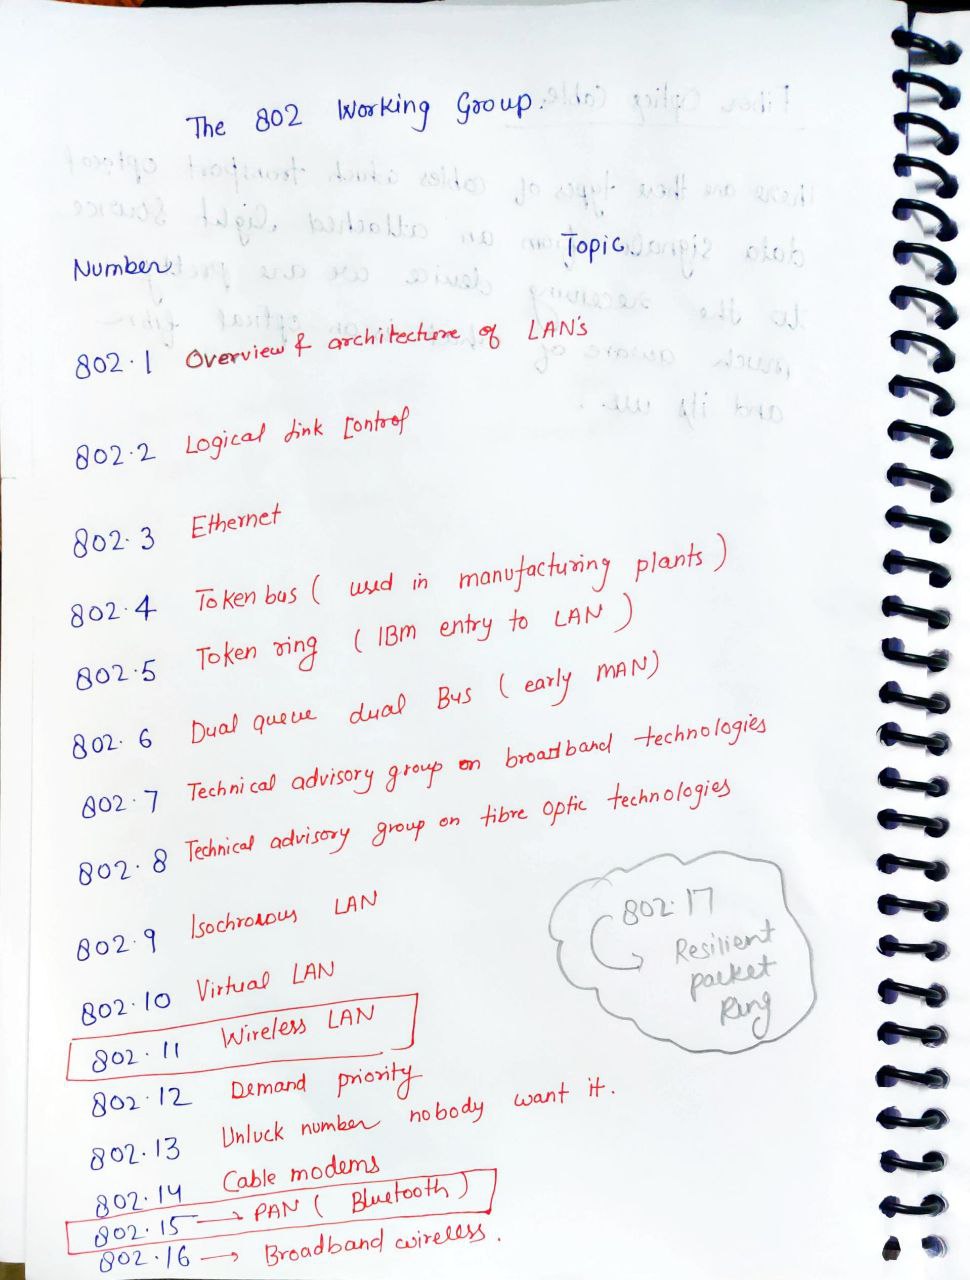 The 802 Working Group.
Number Topic
802.1 Overview & architecture of LAN's
802.2 Logical Link Control
802.3 Ethernet
802.4 Token bus ( used in manufacturing plants )
802.5 Token ring ( IBM entry to LAN )
802.6 Dual queue dual Bus ( early MAN)
802.7 Technical advisory group on broadband technologies
802.8 Technical advisory group on fibre optic technologies
802.9 Isochronous LAN
802.10 Virtual LAN
802.11 Wireless LAN
802.12 Demand priority
802.13 Unluck number nobody want it.
802.14 Cable modems
802.15 → PAN ( Bluetooth )
802.16 → Broadband wireless.
802.17
Resilient
packet
Ring